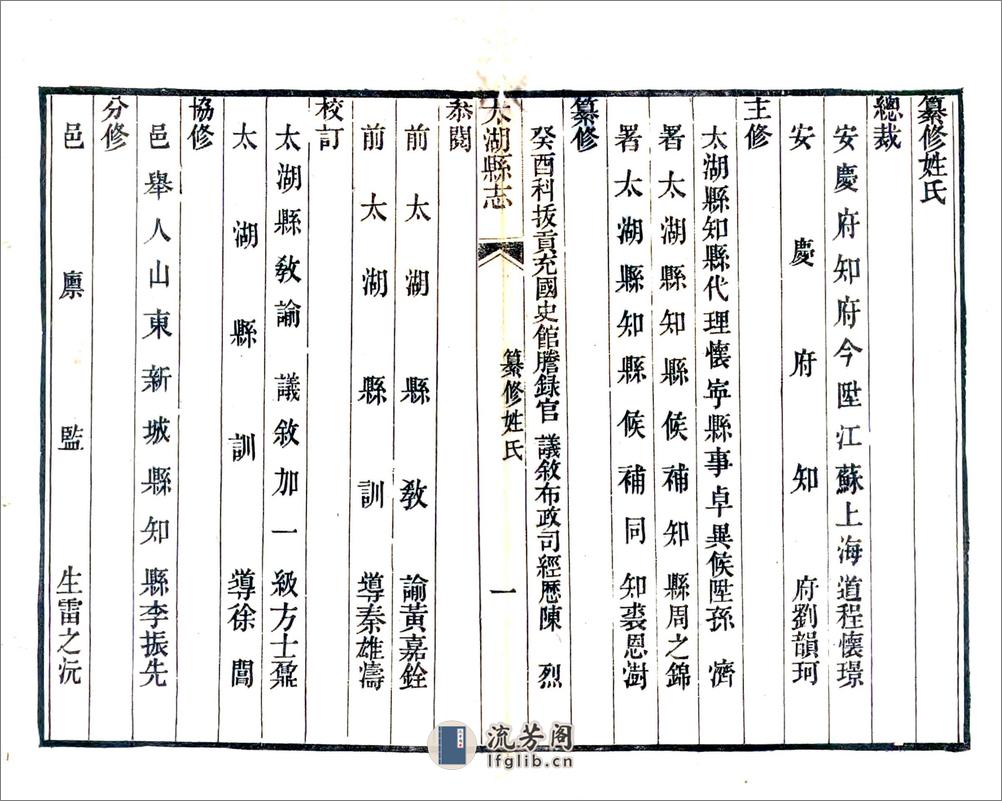 纂修姓氏
總裁
安慶府知府今陞江蘇上海道程懷璟
安慶府知府劉韻珂
主修
太湖縣知縣代理懷寧縣事卓異候陞孫濟
署太湖縣知縣候補知縣周之錦
署太湖縣知縣候補同知裘恩澍
纂修
癸酉科拔貢充國史館謄錄官議敘布政司經歷陳烈
太湖縣志
纂修姓氏
一
叅閱
前太湖縣教諭黃嘉銓
前太湖縣訓導秦雄濤
校訂
太湖縣教諭議敘加一級方士鼐
太湖縣訓導徐誾
協修
邑舉人山東新城縣知縣李振先
分修
邑廪監生雷之沅
流芳阁
lfglib.cn